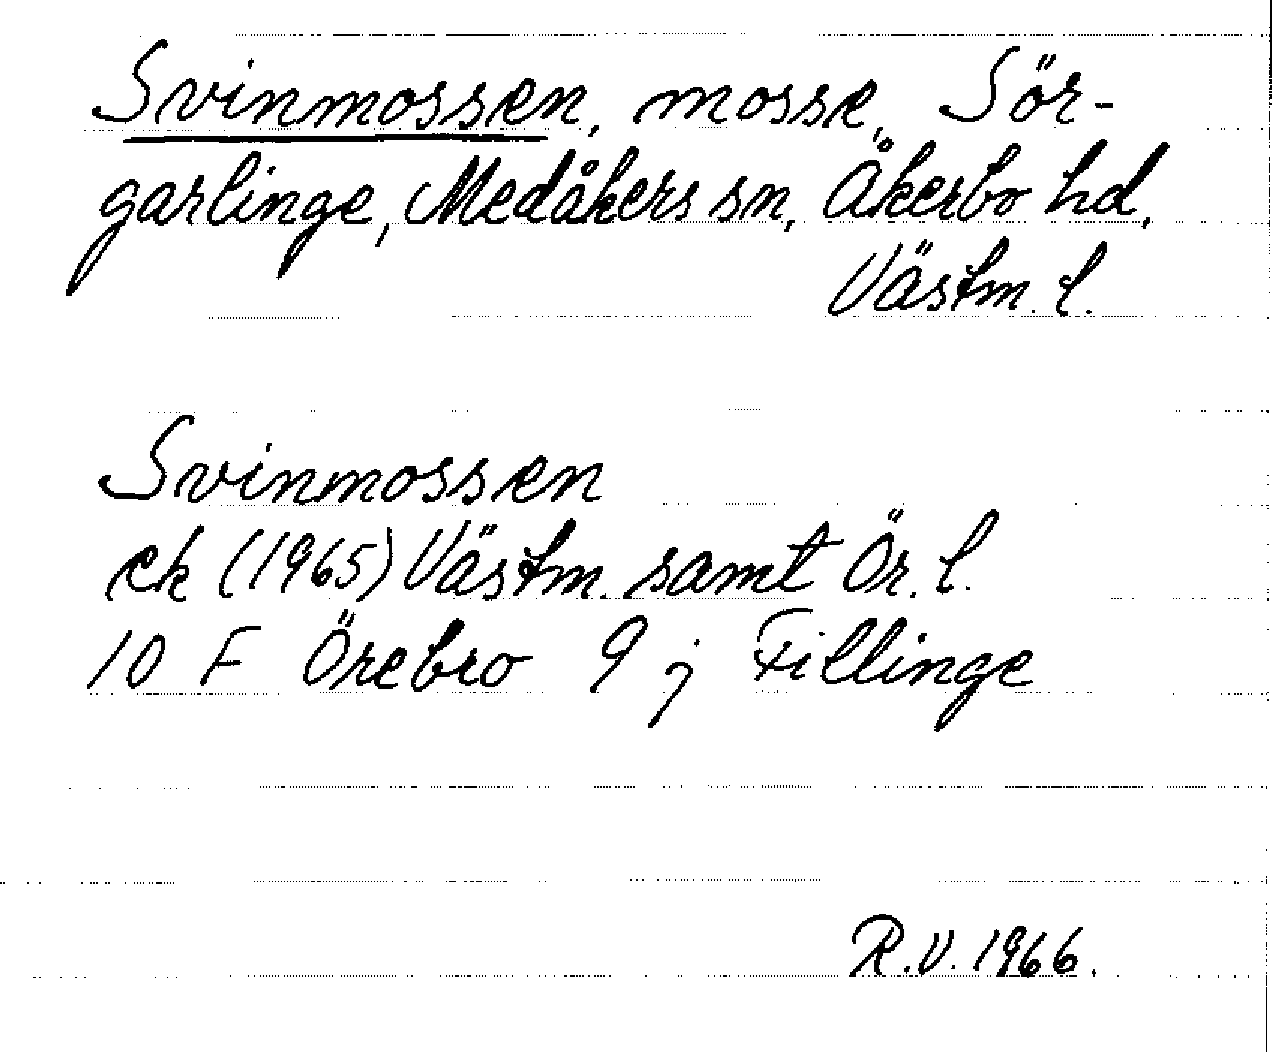 Svinmossen, mosse, Sör-
garlinge, Medåkers sn, Åkerbo hd,
Västm. l.
Svinmossen
ek (1965) Västm. samt Ör. l.
10 F Örebro 9 j Fillinge
R.V. 1966.